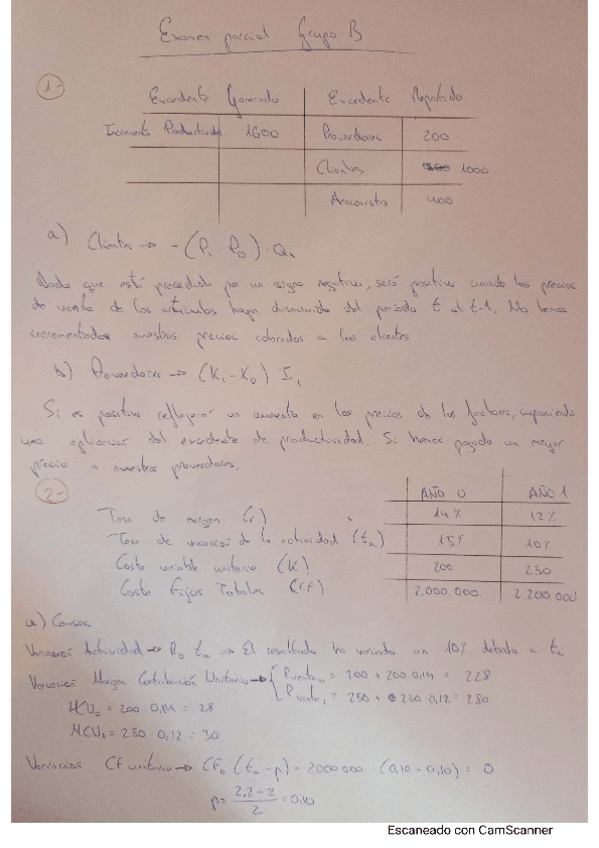 Examen parcial Grupo B
1-
Excedente Generado Excedente Repartido
Incremento Productividad 1600 Proveedores 200
Clientes 1000
Accionistas 400
a) Clientes → -(P₁ - P₀) · Q₁
Dado que está precedido por un signo negativo, será positivo cuando los precios
de venta de los artículos hayan disminuido del período t al t-1. No hemos
incrementado nuestros precios cobrados a los clientes
b) Proveedores → (K₁ - K₀) I₁
Si es positivo reflejará un aumento en los precios de los factores, suponiendo
una aplicación del excedente de productividad. Si hemos pagado un mayor
precio a nuestros proveedores.
2-
AÑO 0 AÑO 1
Tasa de margen (r) 14% 12%
Tasa de variación de la actividad (ta) 15% 10%
Costo variable unitario (K) 200 250
Costo Fijos Totales (CF) 2.000.000. 2.200.000
a) Causas
Variación Actividad → R₀ ta → El resultado ha variado un 10% debido a ta
Variación Margen Contribución Unitario → Pventa₀ = 200 + 200·0,14 = 228
Pventa₁ = 250 + 250·0,12 = 280
MCU₀ = 200·0,14 = 28
MCU₁ = 250·0,12 = 30
Variación CF unitario → CF₀ (ta - p) = 2000000 · (0,10 - 0,10) = 0
p = 2,2 - 2 / 2 = 0,10
Escaneado con CamScanner